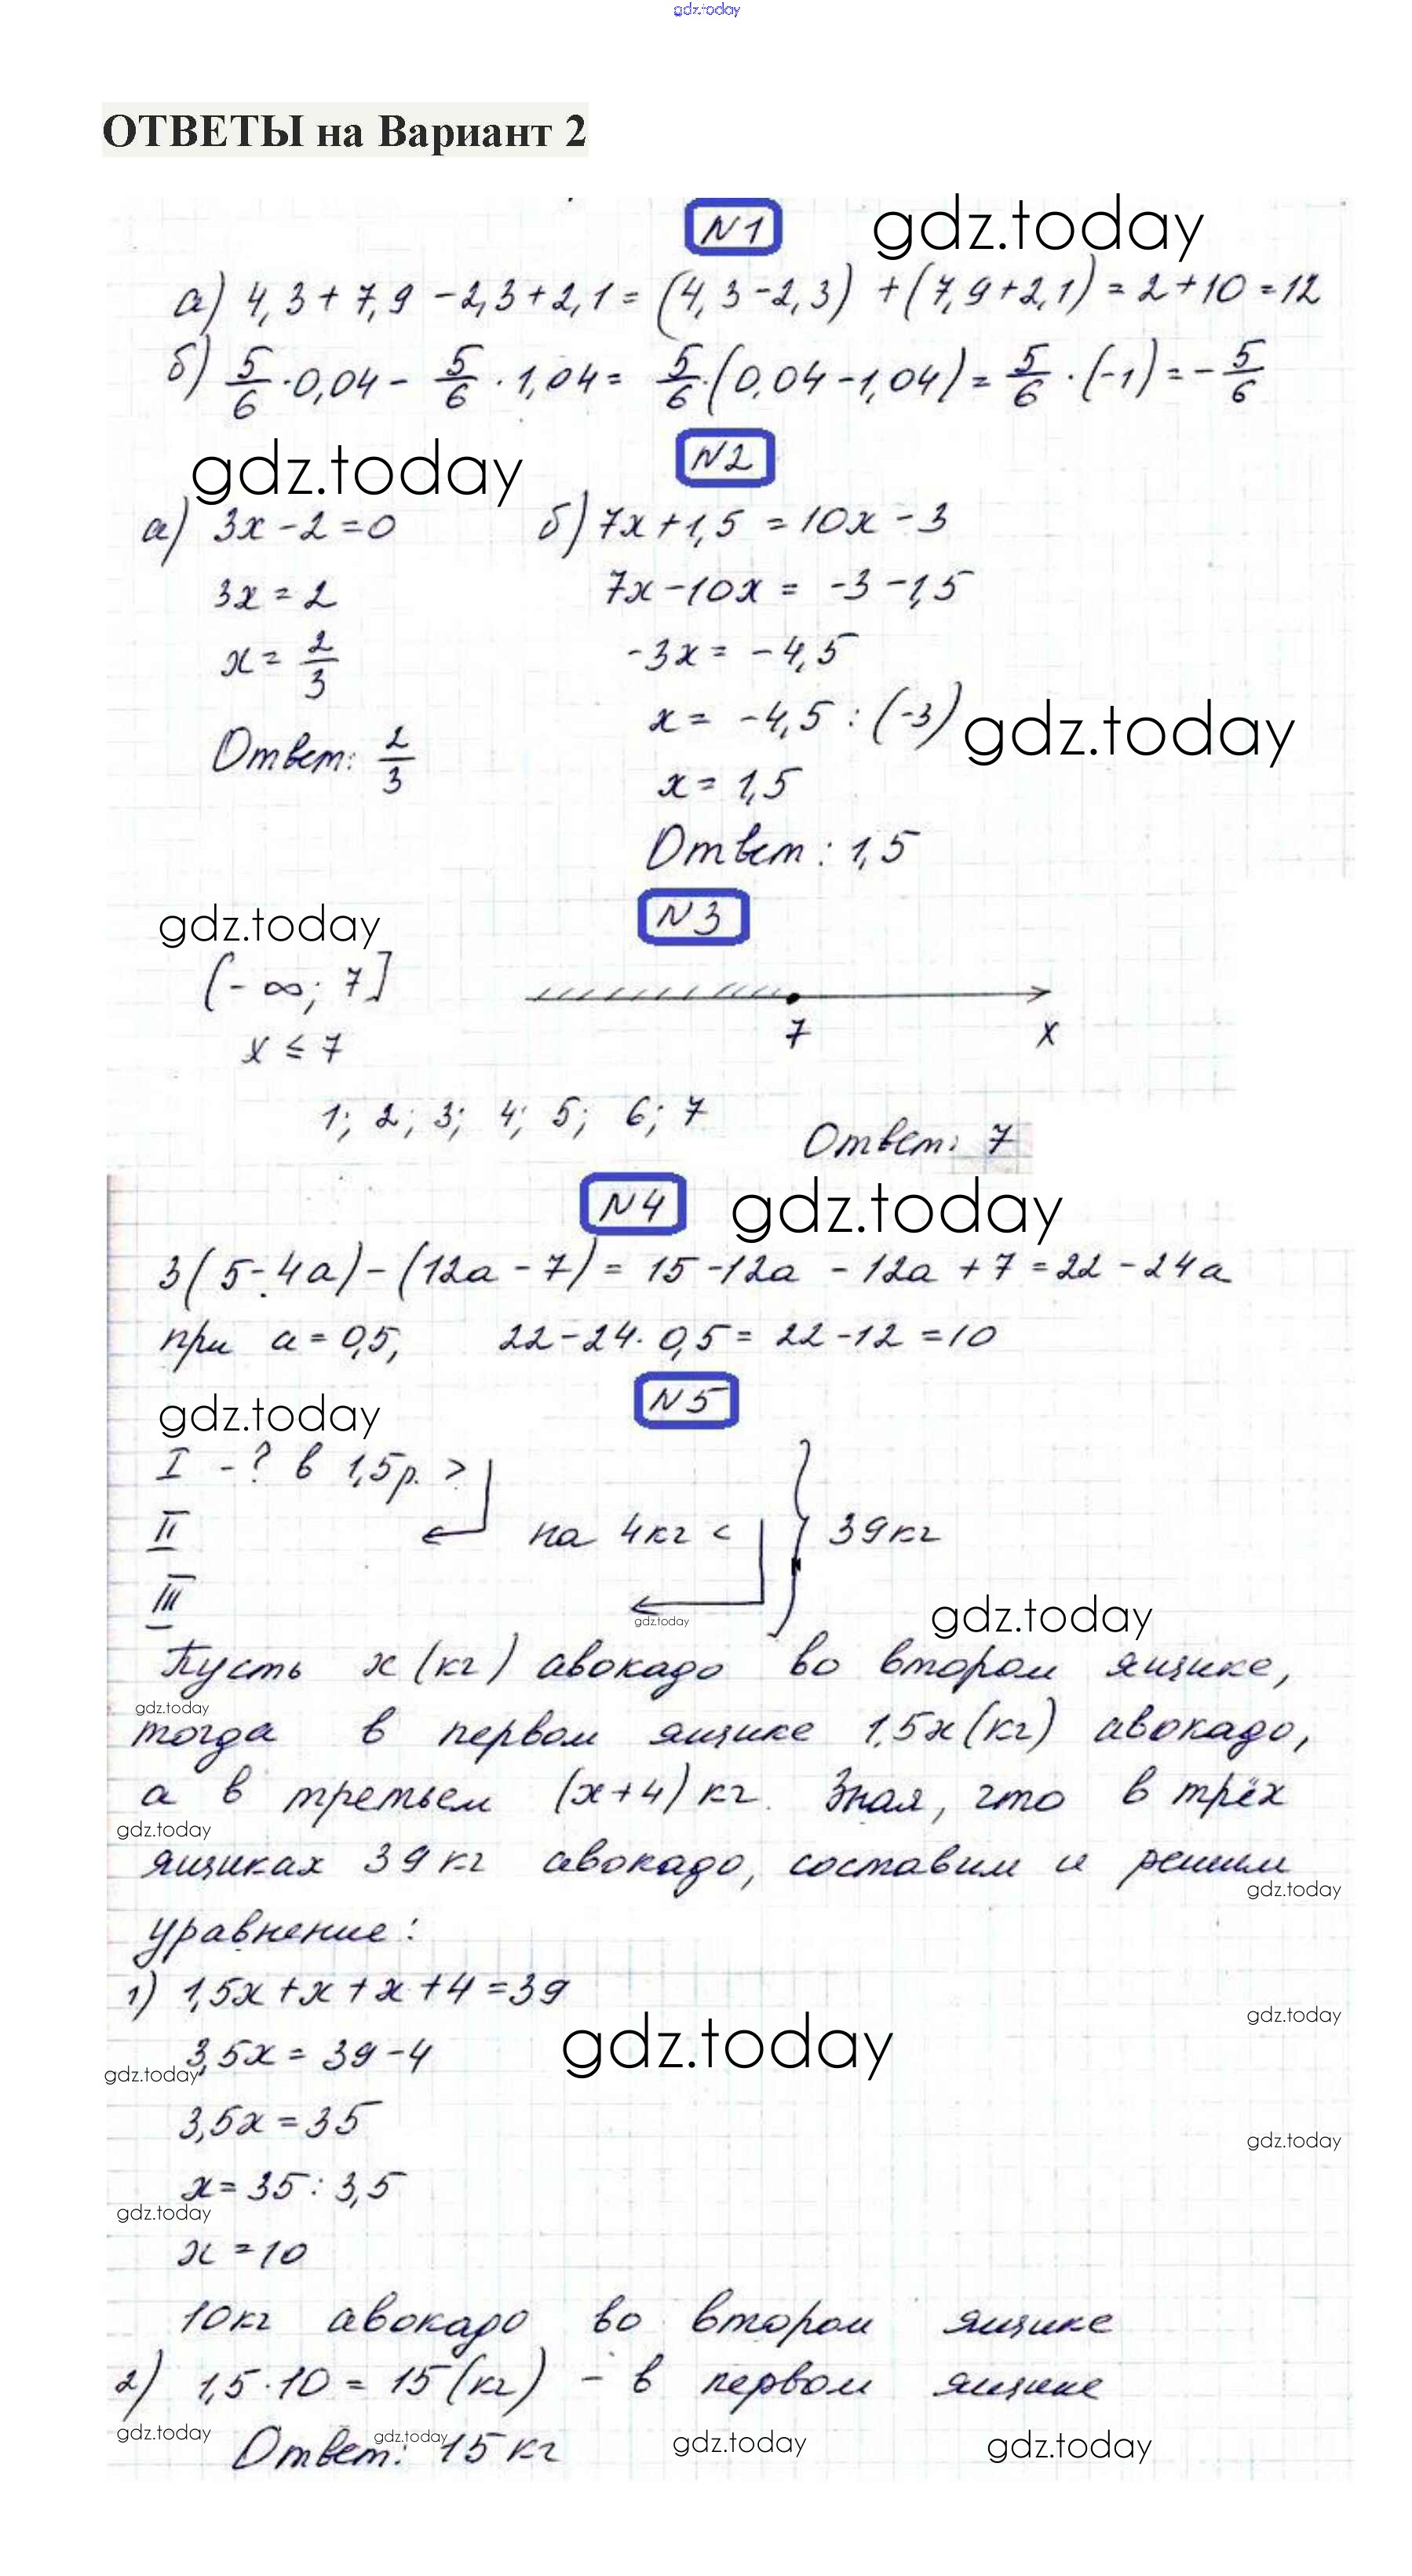 gdz.today
ОТВЕТЫ на Вариант 2
N1 gdz.today
а) 4,3 + 7,9 - 2,3 + 2,1 = (4,3 - 2,3) + (7,9 + 2,1) = 2 + 10 = 12
б) 5/6 · 0,04 - 5/6 · 1,04 = 5/6 · (0,04 - 1,04) = 5/6 · (-1) = - 5/6
gdz.today N2
а) 3x - 2 = 0 б) 7x + 1,5 = 10x - 3
3x = 2 7x - 10x = -3 - 1,5
x = 2/3 -3x = -4,5
x = -4,5 : (-3) gdz.today
Ответ: 2/3 x = 1,5
Ответ: 1,5
gdz.today N3
(-∞; 7]
7 x
x ≤ 7
1; 2; 3; 4; 5; 6; 7
Ответ: 7
N4 gdz.today
3(5 - 4a) - (12a - 7) = 15 - 12a - 12a + 7 = 22 - 24a
при a = 0,5, 22 - 24 · 0,5 = 22 - 12 = 10
gdz.today N5
I - ? в 1,5 р. >
II на 4кг < 39кг
III
gdz.today gdz.today
Пусть x (кг) авокадо во втором ящике,
gdz.today
тогда в первом ящике 1,5x (кг) авокадо,
а в третьем (x + 4) кг. Зная, что в трёх
gdz.today
ящиках 39 кг авокадо, составим и решим
gdz.today
уравнение:
1) 1,5x + x + x + 4 = 39
gdz.today
gdz.today
3,5x = 39 - 4
gdz.today
3,5x = 35
gdz.today
x = 35 : 3,5
gdz.today
x = 10
10кг авокадо во втором ящике
2) 1,5 · 10 = 15 (кг) - в первом ящике
gdz.today gdz.today gdz.today gdz.today
Ответ: 15 кг